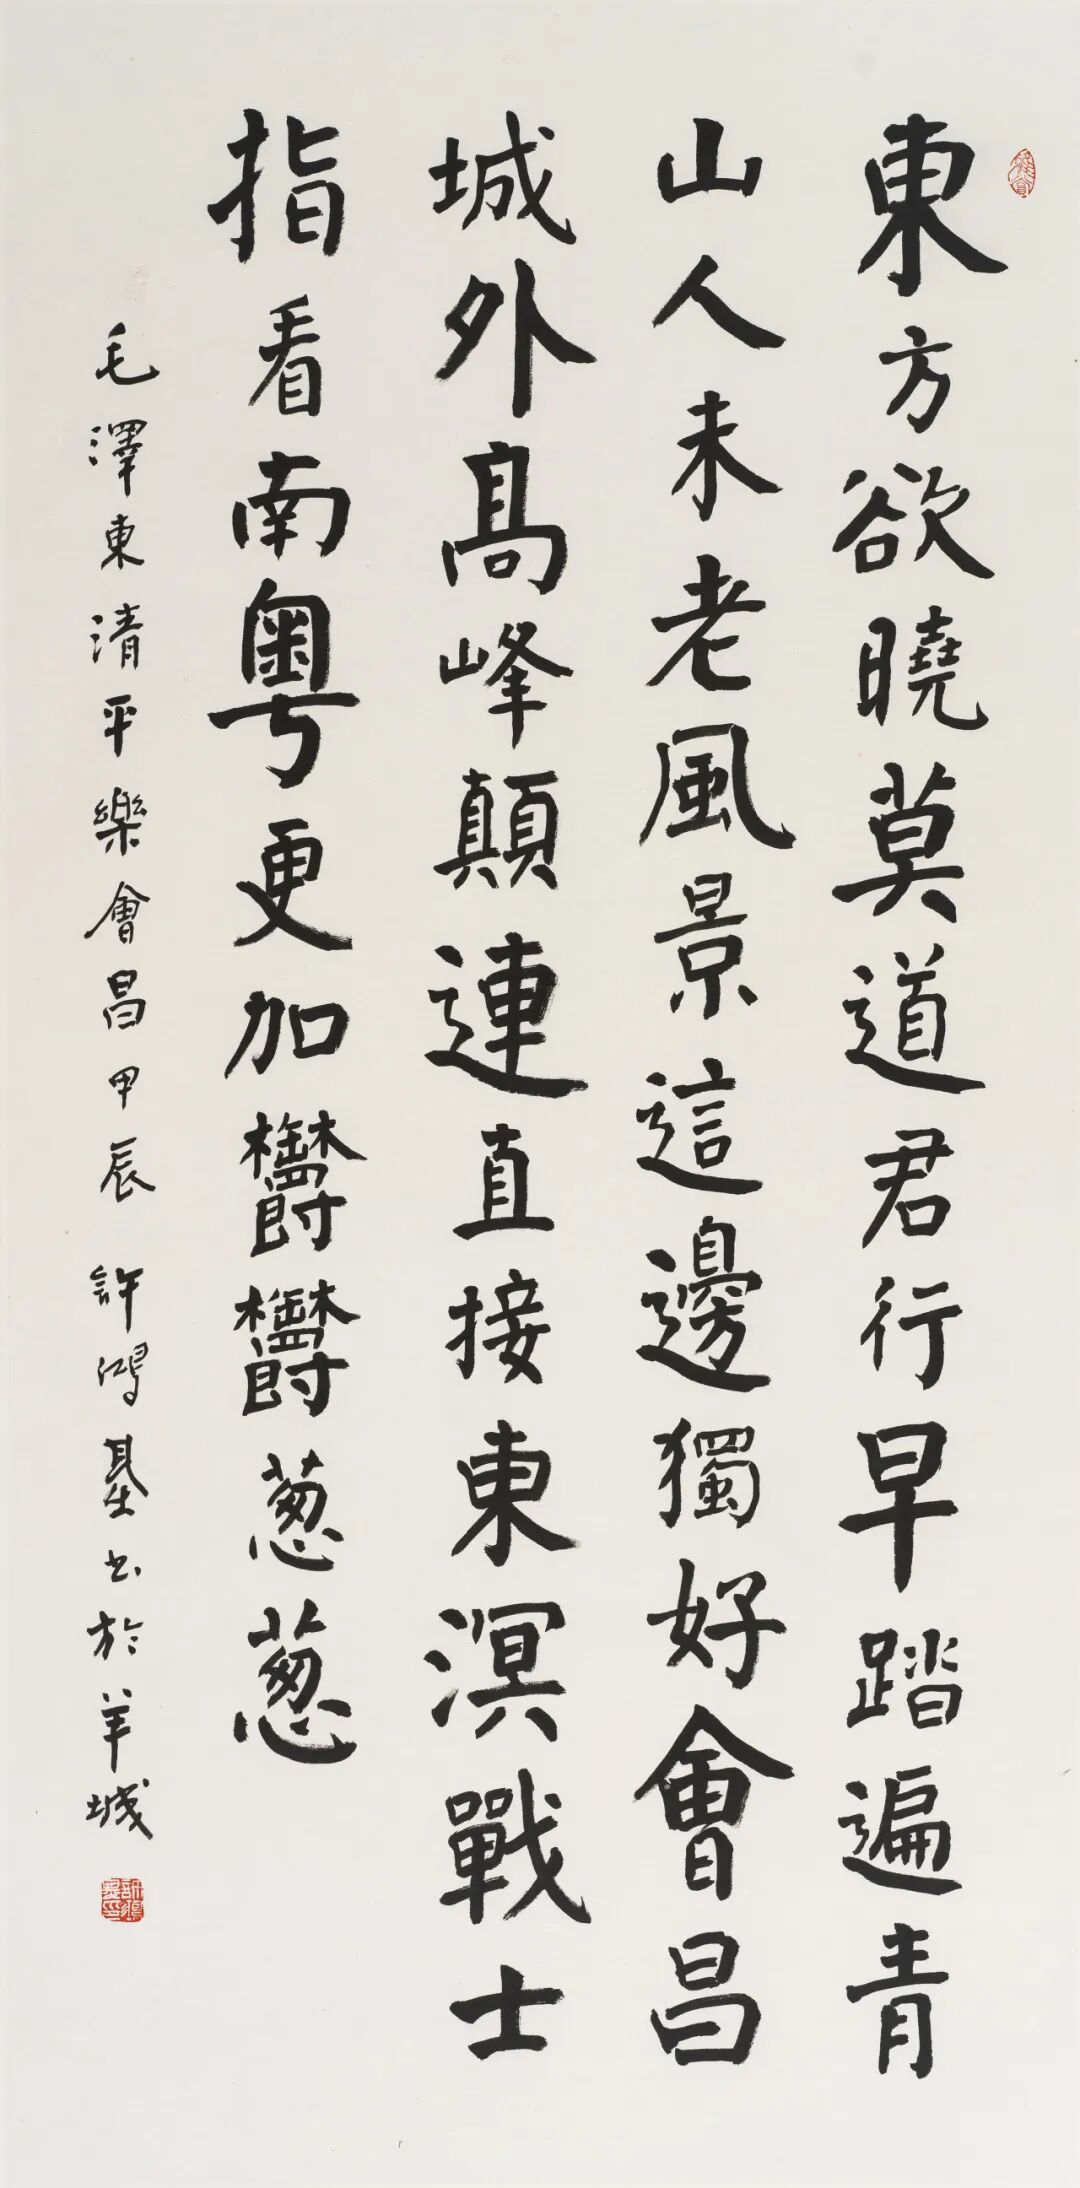 東方欲曉莫道君行早踏遍青
山人未老風景這邊獨好會昌
城外高峰顛連直接東溟戰士
指看南粵更加欝欝葱葱
毛澤東清平樂會昌甲辰許鴻基书於羊城
許鴻基印